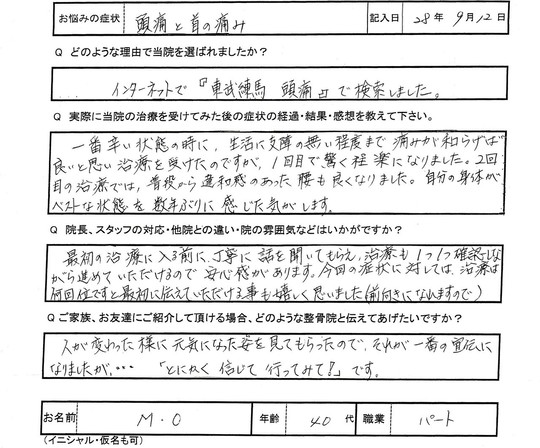 お悩みの症状 頭痛と首の痛み 記入日 28年 9月12日
Q どのような理由で当院を選ばれましたか？
インターネットで『東武練馬 頭痛』で検索しました。
Q 実際に当院の治療を受けてみた後の症状の経過・結果・感想を教えて下さい。
一番辛い状態の時に、生活に支障の無い程度まで痛みが和らげば
良いと思い治療を受けたのですが、1回目で驚く程楽になりました。2回
目の治療では、普段から違和感のあった腰も良くなりました。自分の身体が
ベストな状態を数年ぶりに感じた気がします。
Q 院長、スタッフの対応・他院との違い・院の雰囲気などはいかがですか？
最初の治療に入る前に、丁寧に話を聞いてもらえ、治療も1つ1つ確認しな
がら進めていただけるので安心感があります。今回の症状に対しては、治療は
何回位ですと最初に伝えていただける事も嬉しく思いました(前向きになれますので)
Q ご家族、お友達にご紹介して頂ける場合、どのような整骨院と伝えてあげたいですか？
人が変わった様に元気になった姿を見てもらったので、それが一番の宣伝に
なりましたが、・・・「とにかく信じて行ってみて？」です。
お名前 M.O 年齢 40代 職業 パート
(イニシャル・仮名も可)